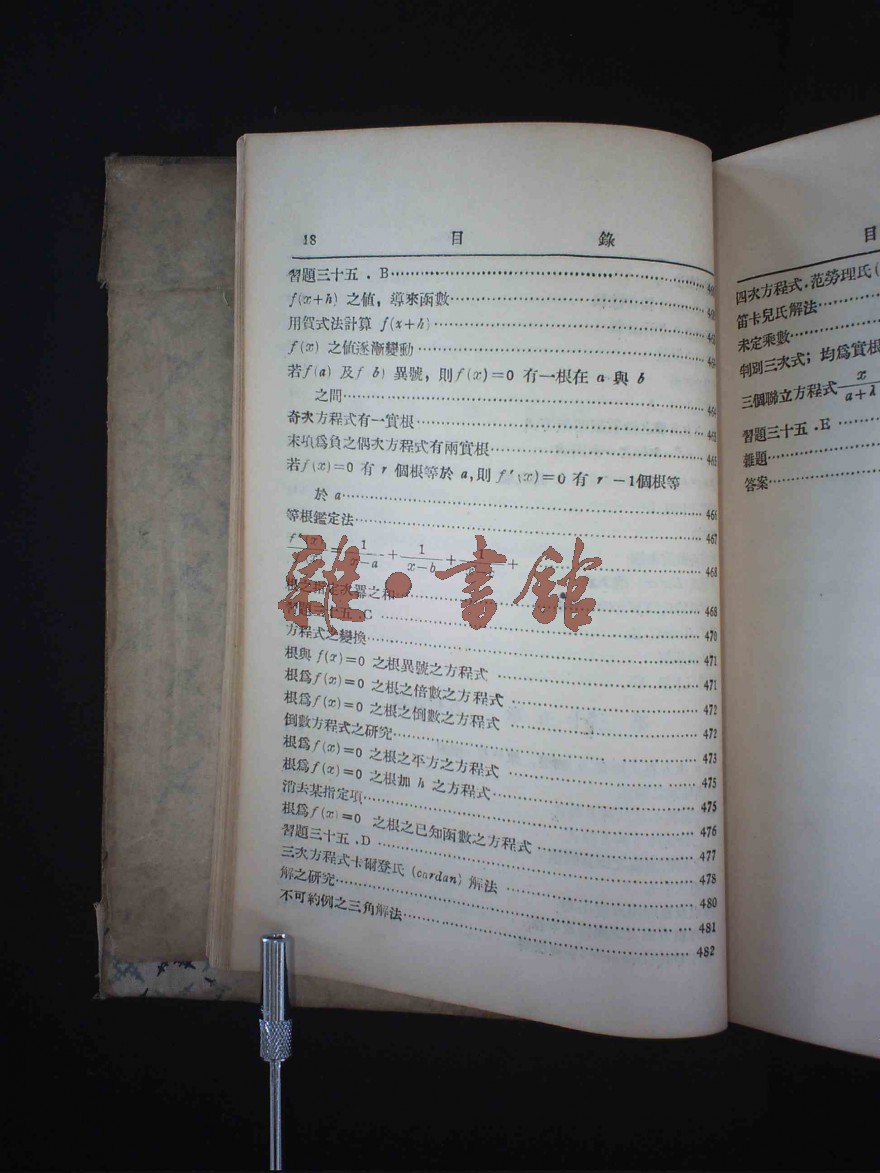 18 目 錄
習題三十五．B
f(x+h) 之值，導來函數
用賀式法計算 f(x+h)
f(x) 之值逐漸變動
若f(a) 及f b) 異號，則f(x)=0 有一根在 a 與 b
之間 464
奇次方程式有一實根
末項爲負之偶次方程式有兩實根 465
若f(x)=0 有 r 個根等於 a,則 f'(x)=0 有 r －1個根等
於 a 466
等根鑑定法 467
1/x-a + 1/x-b + + 468
根之指定次冪之和 468
習題三十五．C 470
方程式之變換 471
根與 f(x)=0 之根異號之方程式 471
根爲f(x)=0 之根之倍數之方程式 472
根爲f(x)=0 之根之倒數之方程式 472
倒數方程式之研究 473
根爲f(x)=0 之根之平方之方程式 475
根爲f(x)=0 之根加 h 之方程式 475
消去某指定項 476
根爲f(x)=0 之根之已知函數之方程式 477
習題三十五．D 478
三次方程式卡爾登氏 (cardan) 解法 480
解之研究 481
不可約例之三角解法 482
雜·書館
目
四次方程式，范勞理氏(
笛卡兒氏解法
未定乘數
判別三次式；均爲實根
三個聯立方程式 x/a+λ
習題三十五．E
雜題
答案